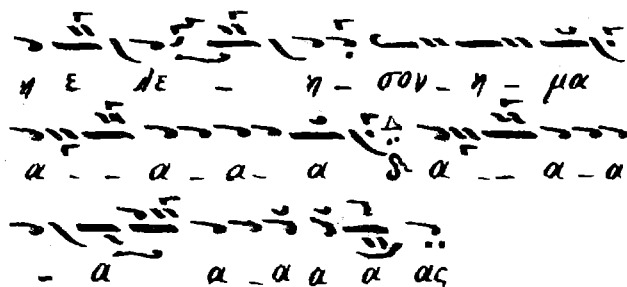 η ε λε - η - σον - η - μα
α - - α - α - α α - - α - α
- α α - α α α ας